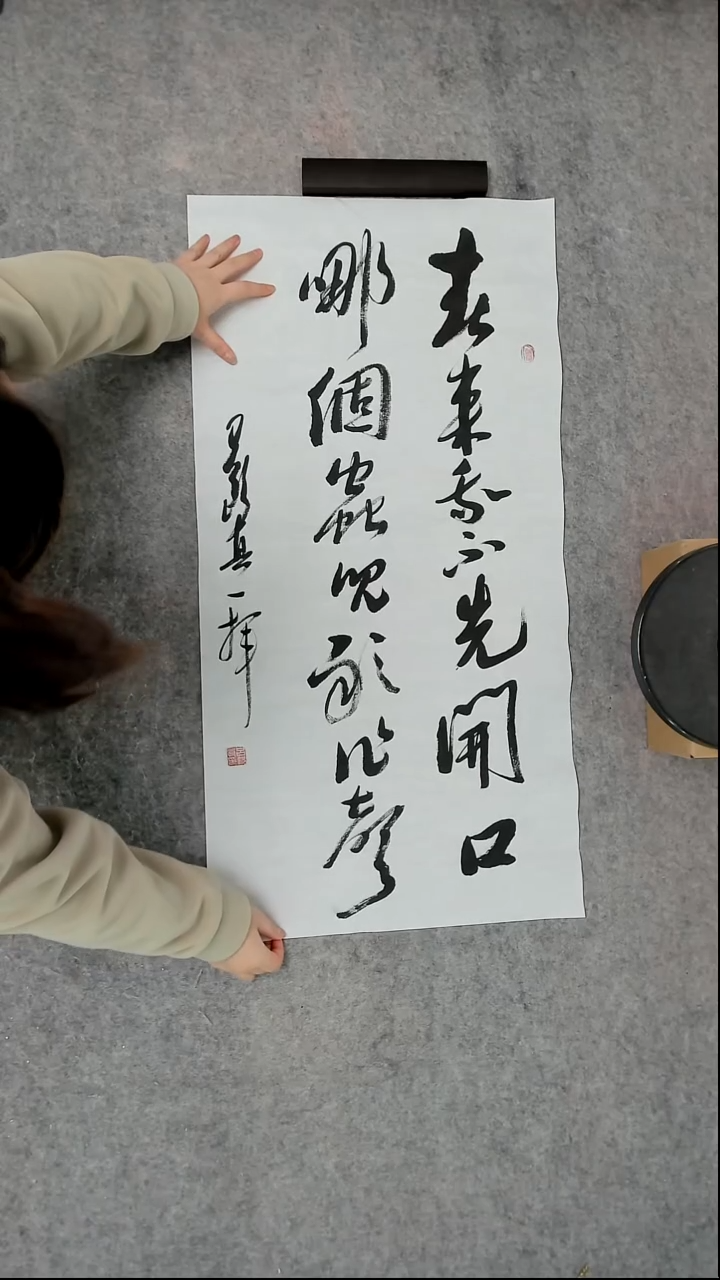 春來我不先開口
哪個蟲兒敢作聲